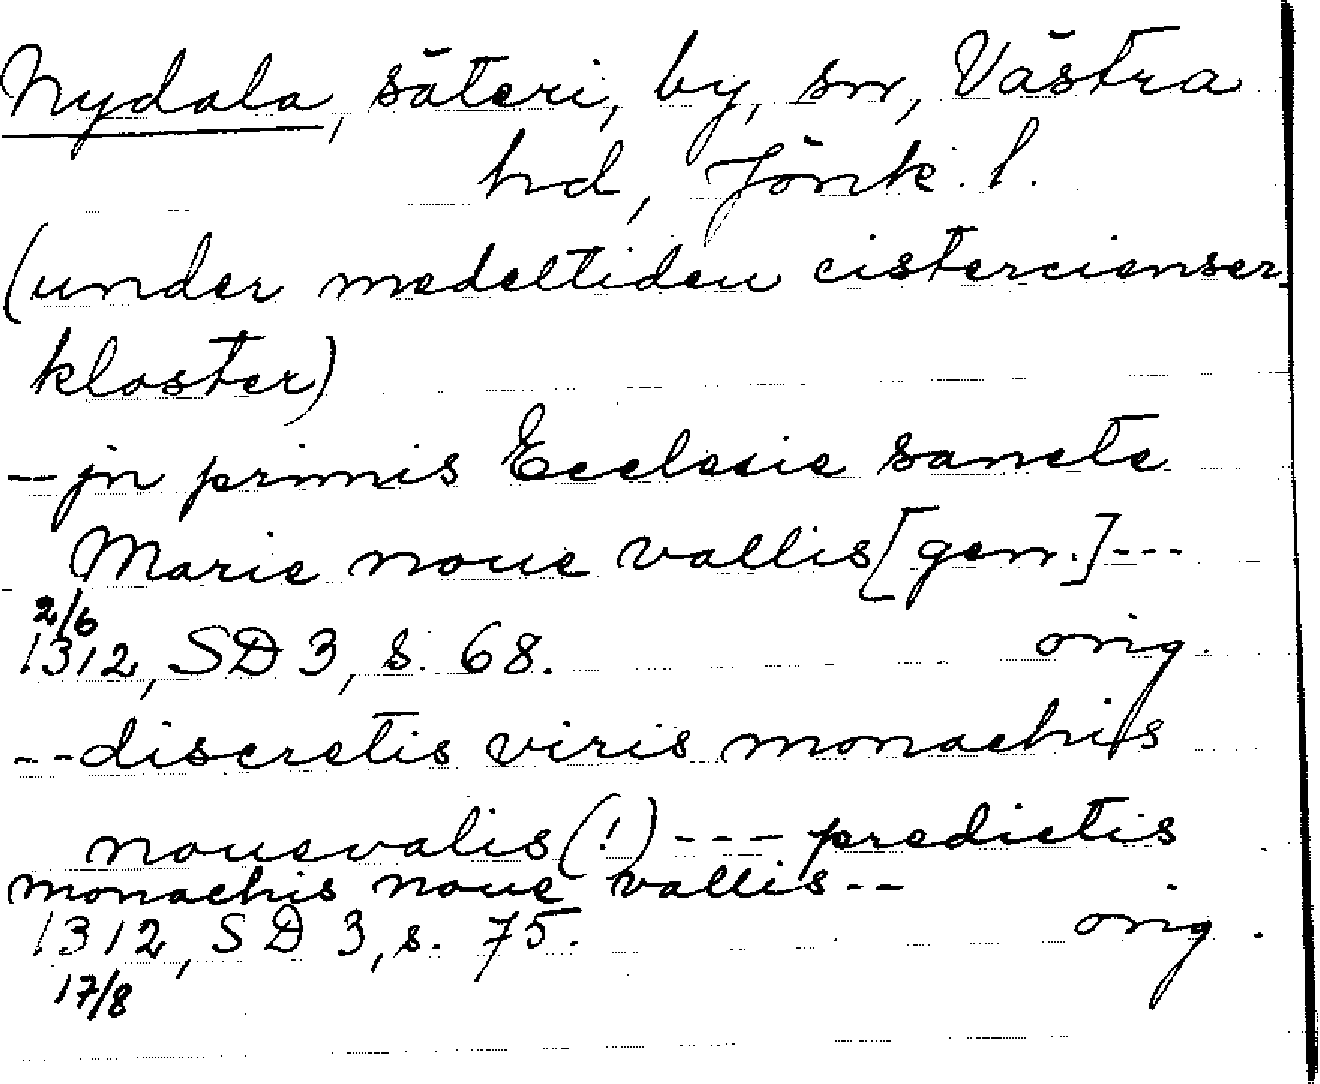 Nydala, säteri, by, sn, Västra
hd, Jönk. l.
(under medeltiden cistercienser
kloster)
-- jn primis Ecclesie sancte
Marie noue vallis [gen.] ---
2/6
1312, SD 3, s. 68. orig.
-- discretis viris monachis
nouevalis (!) --- predictis
monachis noue vallis --
1312, SD 3, s. 75. orig.
17/8